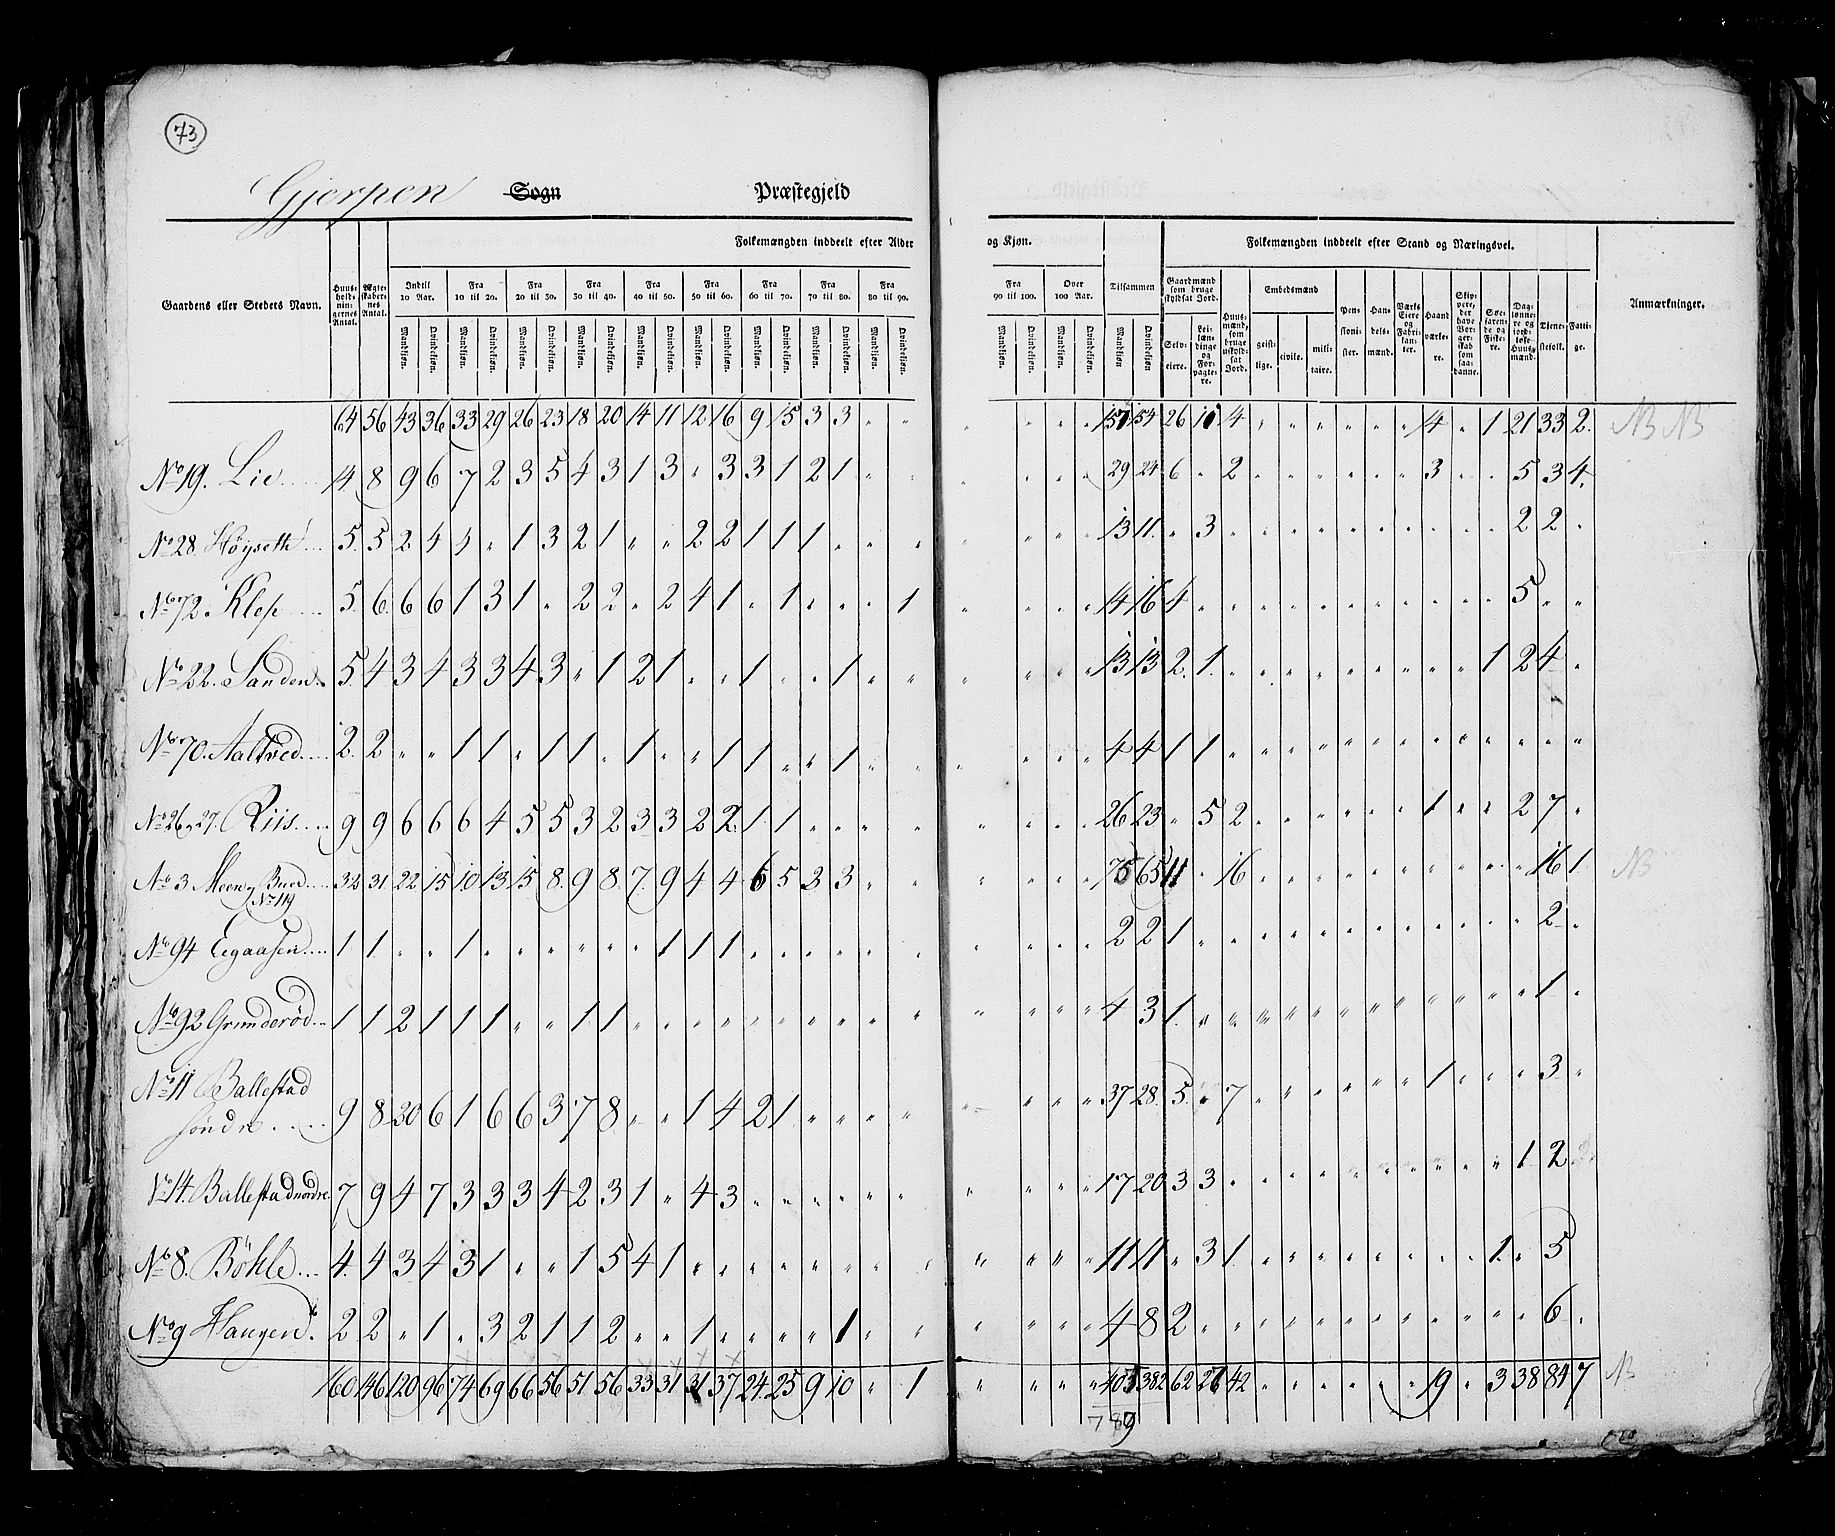 73
Gjerpen Sogn Præstegjeld
Folkemængden inddeelt efter Alder og Kjøn. Folkemængden inddeelt efter Stand og Næringsvei.
Gaardens eller Stedets Navn. Huusholdningernes Antal. Ægteskabernes Antal. Indtil 10 Aar. Fra 10 til 20. Fra 20 til 30. Fra 30 til 40. Fra 40 til 50. Fra 50 til 60. Fra 60 til 70. Fra 70 til 80. Fra 80 til 90. Fra 90 til 100. Over 100 Aar. Tilsammen Gaardmænd som bruge skyldsat Jord. Huusmænd, som bruge uskyldsat Jord. Embedsmænd Pensionister. Handelsmænd. Værks Eiere og Fabrikanter. Haandværkere. Skippere, der have Borgerskab som saadanne. Søefarende og Fiskere. Daglønnere og jordløse Huusmænd. Tjenestefolk. Fattige. Anmærkninger.
Mandkjøn. Qvindekjøn. Mandkjøn. Qvindekjøn. Mandkjøn. Qvindekjøn. Mandkjøn. Qvindekjøn. Mandkjøn. Qvindekjøn. Mandkjøn. Qvindekjøn. Mandkjøn. Qvindekjøn. Mandkjøn. Qvindekjøn. Mandkjøn. Qvindekjøn. Mandkjøn. Qvindekjøn. Mandkjøn. Qvindekjøn. Mandkjøn Qvindekjøn Selveiere. Leilændinge og Forpagtere. geistlige. civile. militaire.
64 56 43 36 33 29 26 23 18 20 14 11 12 16 9 15 3 3 " " " " " " 157 154 26 4 " " " " " " 4 " 1 21 33 2. NB NB
No 19. Lie 14 8 9 6 7 2 3 5 4 3 1 3 " 3 3 1 2 1 " " " " " " 29 24 6 " 2 " " " " " " 3 " " 5 3 4.
No 28. Höyseth 5. 5 2 4 " 1 3 2 1 " " 2 2 1 1 1 " " " " " " " 13 11. " 3 " " " " " " " " " " 2 2 "
No 72. Klep 5. 6. 6 6 1 3 1 " 2 2 " 2 4 1 " 1 " " " 1 " " " " 14 16 4 " " " " " " " " " " " 5 " "
No 22. Sanden. 5. 4 3 4 3 3 4 3 " 1 2 1 " " 1 " " 1 " " " " " " 13 13 2. 1. " " " " " " " " " 1 2 4 "
No 70. Aaltved 2. 2 " " 1 1 " 1 1 " 1 " " 1 1 " " 1 " " " " " " 4 4 1 1 " " " " " " " " " " " " "
No 26, 27. Riis 9 9 6 6 6 4 5 5 3 2 3 3 2 2. 1 1 " " " " " " " " 26 23 " 5 2 " " " " " " 1 " " 2 7 "
No 3 Meen, Bued No 119 32 31 22 15 10 13 15 8. 9 8. 7. 9 4 4 6 5 2 3 " " " " " " 75 65 11 " 16 " " " " " " " " " " 16 1 NB
No 94 Eegaasen 1 1 " " 1 " " " " " " 1 1 1 " " " " " " " " " " 2 2 1 " " " " " " " " " " " " 2 "
No 92 Grunderöd 1 1 2 1 1 1 " " 1 1 " " " " " " " " " " " " " " 4 3 1. " " " " " " " " " " " " 1 "
No 11 Ballestad
söndre 9 8 20 6 1 6 6 3 7 8 " " 1 4 2 1 " " " " " " " " 37 28. 5. " 7 " " " " " " 1 " " " 3 "
No 14. Ballestad nordre 7 9 4 7 3 3 3 4 2 3 1 " 4 3 " " " " " " " " " " 17 20 3 3 " " " " " " " " " " 1 2
No 8. Böhle 4. 4 3 4 3 1 " " 1 5 4 1 " " " " " " " " " " " " 11 11 " 3 1. " " " " " " " " 1. " 5
No 9 Haugen. 2 2 " 1 " 3 2 1 1 2 " " 1 " " " " 1 " " " " " " 4 8 2 " " " " " " " " " " " " 6 "
160 146 120 96 74 69 66 56 51 56 33 31 31 37 24 25 9 10 " 1 " " " " 382 62 42 " " " " " " 9 " 3 38 84 7 NB
789